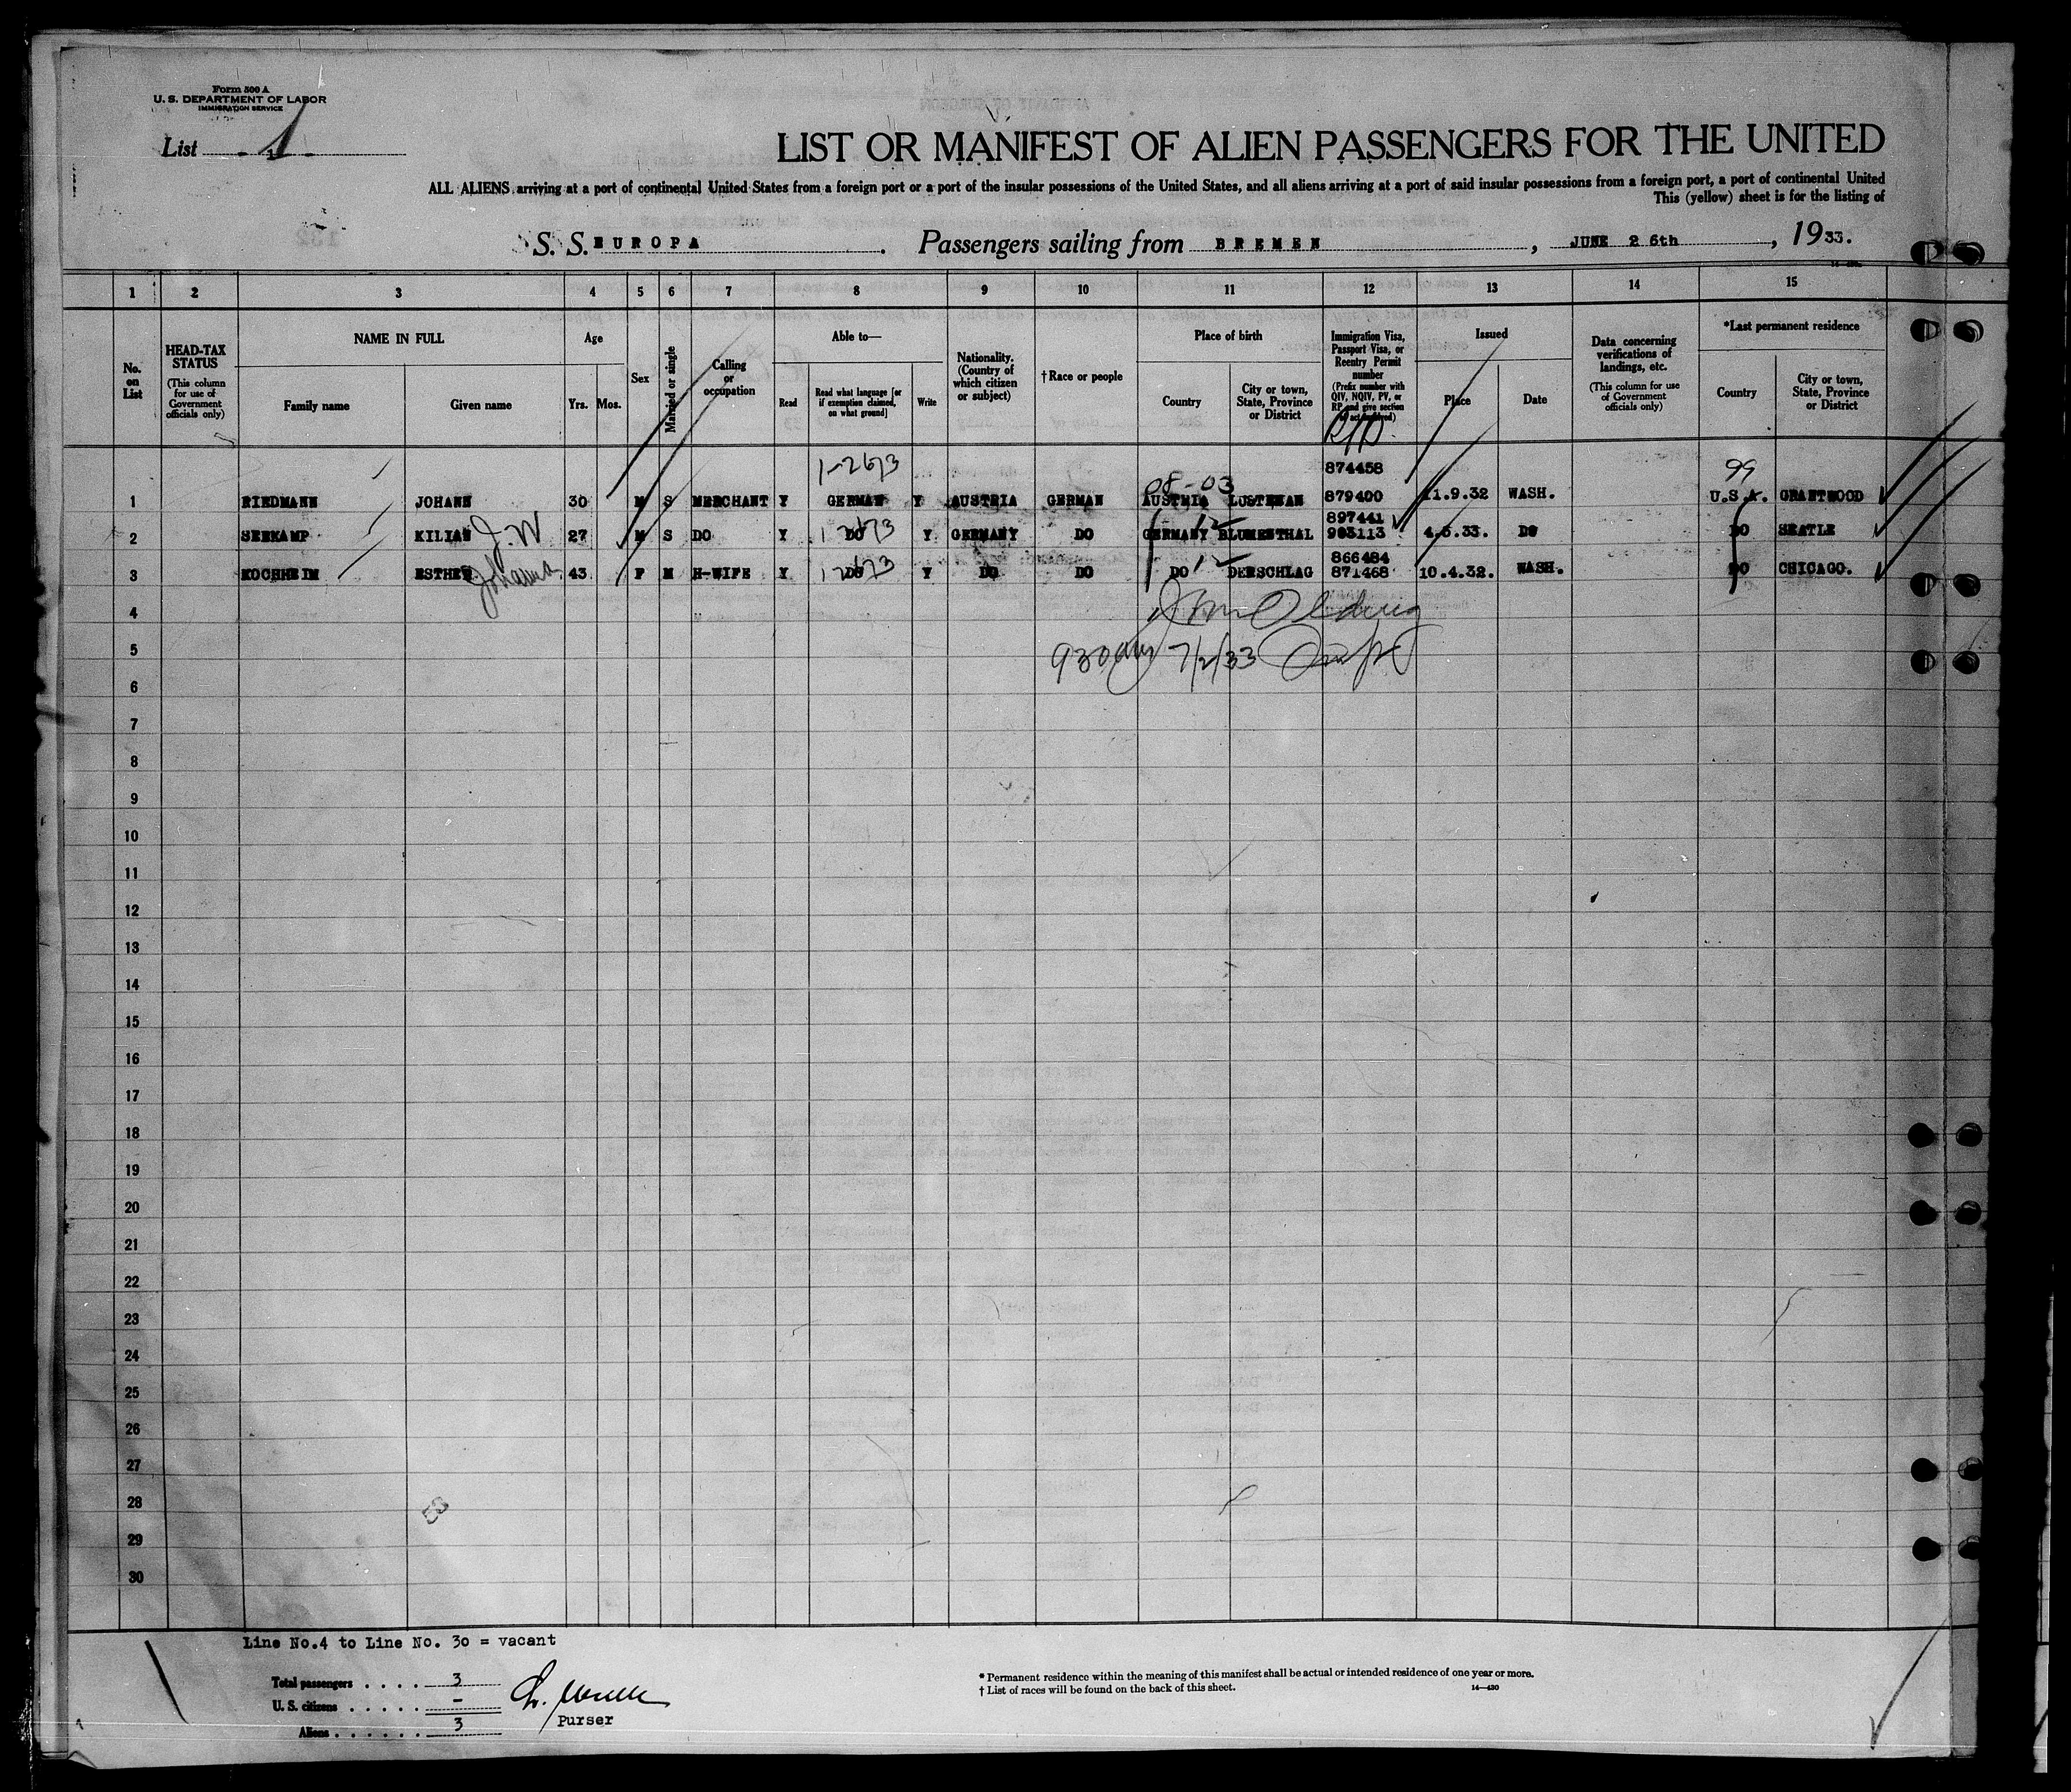 Form 500 A
U. S. DEPARTMENT OF LABOR
IMMIGRATION SERVICE
List 1
LIST OR MANIFEST OF ALIEN PASSENGERS FOR THE UNITED
ALL ALIENS arriving at a port of continental United States from a foreign port or a port of the insular possessions of the United States, and all aliens arriving at a port of said insular possessions from a foreign port, a port of continental United
This (yellow) sheet is for the listing of
S. S. EUROPA. Passengers sailing from BREMEN, JUNE 26th, 1933.
1 2 3 4 5 6 7 8 9 10 11 12 13 14 15
No. on List
HEAD-TAX STATUS (This column for use of Government officials only)
NAME IN FULL
Family name Given name
Age
Yrs. Mos.
Sex
Married or single
Calling or occupation
Able to—
Read Read what language [or if exemption claimed, on what ground] Write
Nationality. (Country of which citizen or subject)
†Race or people
Place of birth
Country City or town, State, Province or District
Immigration Visa, Passport Visa, or Reentry Permit number (Prefix number with QIV, NQIV, PV, or RP and give section
Issued
Place Date
Data concerning verifications of landings, etc. (This column for use of Government officials only)
*Last permanent residence
Country City or town, State, Province or District
1-2673 874458 99
08-03
1 RIEDMANN JOHANN 30 M S MERCHANT Y GERMAN Y AUSTRIA GERMAN AUSTRIA 879400 11.9.32 WASH. U.S.A. GRANTWOOD
897441
2 SEEKAMP KILIAN J.W 27 M S DO Y DO Y GERMANY DO GERMANY BLUMENTHAL 903113 4.5.33. DO DO SEATLE
866484
3 KOCHHEIM ESTHER Johanna 43 F M H-WIFE Y DO Y DO DO DO DERSCHLAG 871468 10.4.32. WASH. DO CHICAGO.
4
5 930am 7/2/33
6
7
8
9
10
11
12
13
14
15
16
17
18
19
20
21
22
23
24
25
26
27
28
29
30
Line No.4 to Line No. 30 = vacant
Total passengers . . . . 3
U. S. citizens . . . . . –
Aliens . . . . . . 3
Purser
* Permanent residence within the meaning of this manifest shall be actual or intended residence of one year or more.
† List of races will be found on the back of this sheet.
14—430